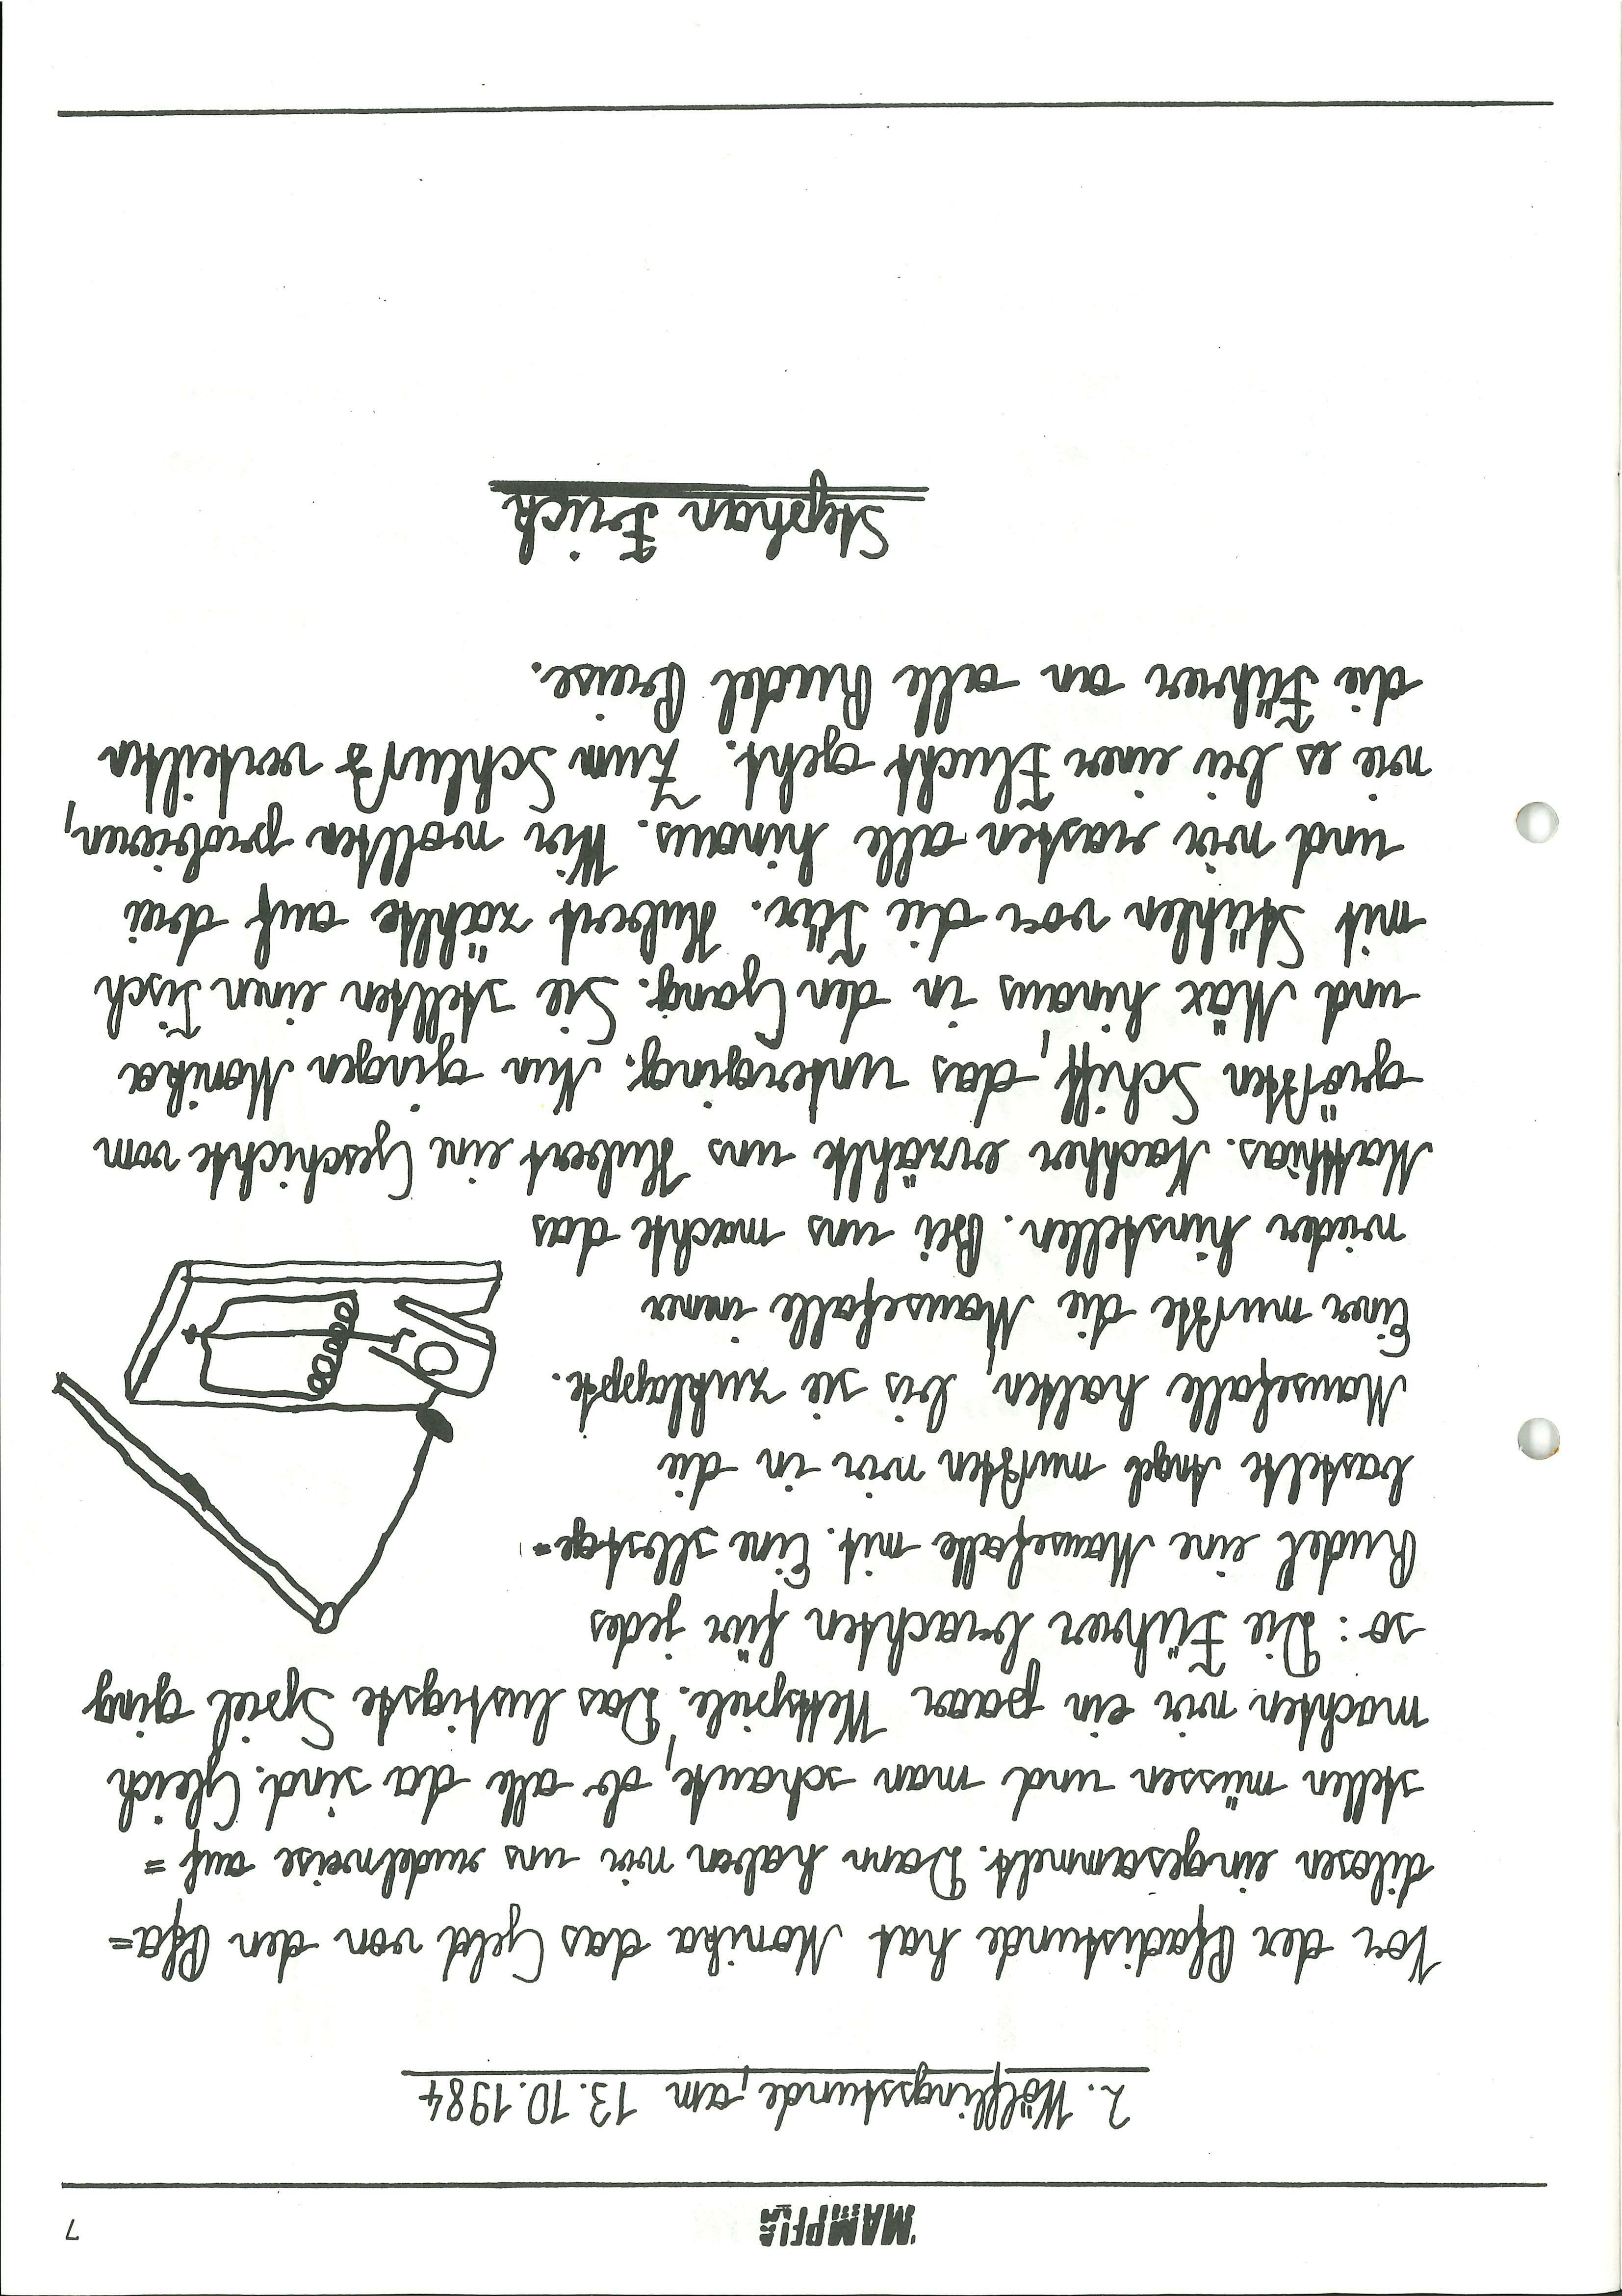 MAMPFIA
7
2. Wölflingsstunde, am 13.10.1984
Vor der Pfadistunde hat Monika das Geld von den Pfa=
dilosen eingesammelt. Dann haben wir uns rudelweise auf=
stellen müssen und man schaute, ob alle da sind. Gleich
machten wir ein paar Wettspiele. Das lustigste Spiel ging
so: Die Führer brachten für jedes
Rudel eine Mausefalle mit. Eine selbstge=
bastelte Angel mußten wir in die
Mausefalle halten, bis sie zuklappte.
Einer mußte die Mausefalle immer
wieder hinstellen. Bei uns machte das
Matthias. Nachher erzählte uns Hubert eine Geschichte vom
größten Schiff, das unterging. Nun gingen Monika
und Max hinaus in den Gang. Sie stellten einen Tisch
mit Stühlen vor die Tür. Hubert zählte auf drei
und wir rasten alle hinaus. Wir wollten probieren,
wie es bei einer Flucht geht. Zum Schluß verteilten
die Führer an alle Rudel Preise.
Stephan Frich